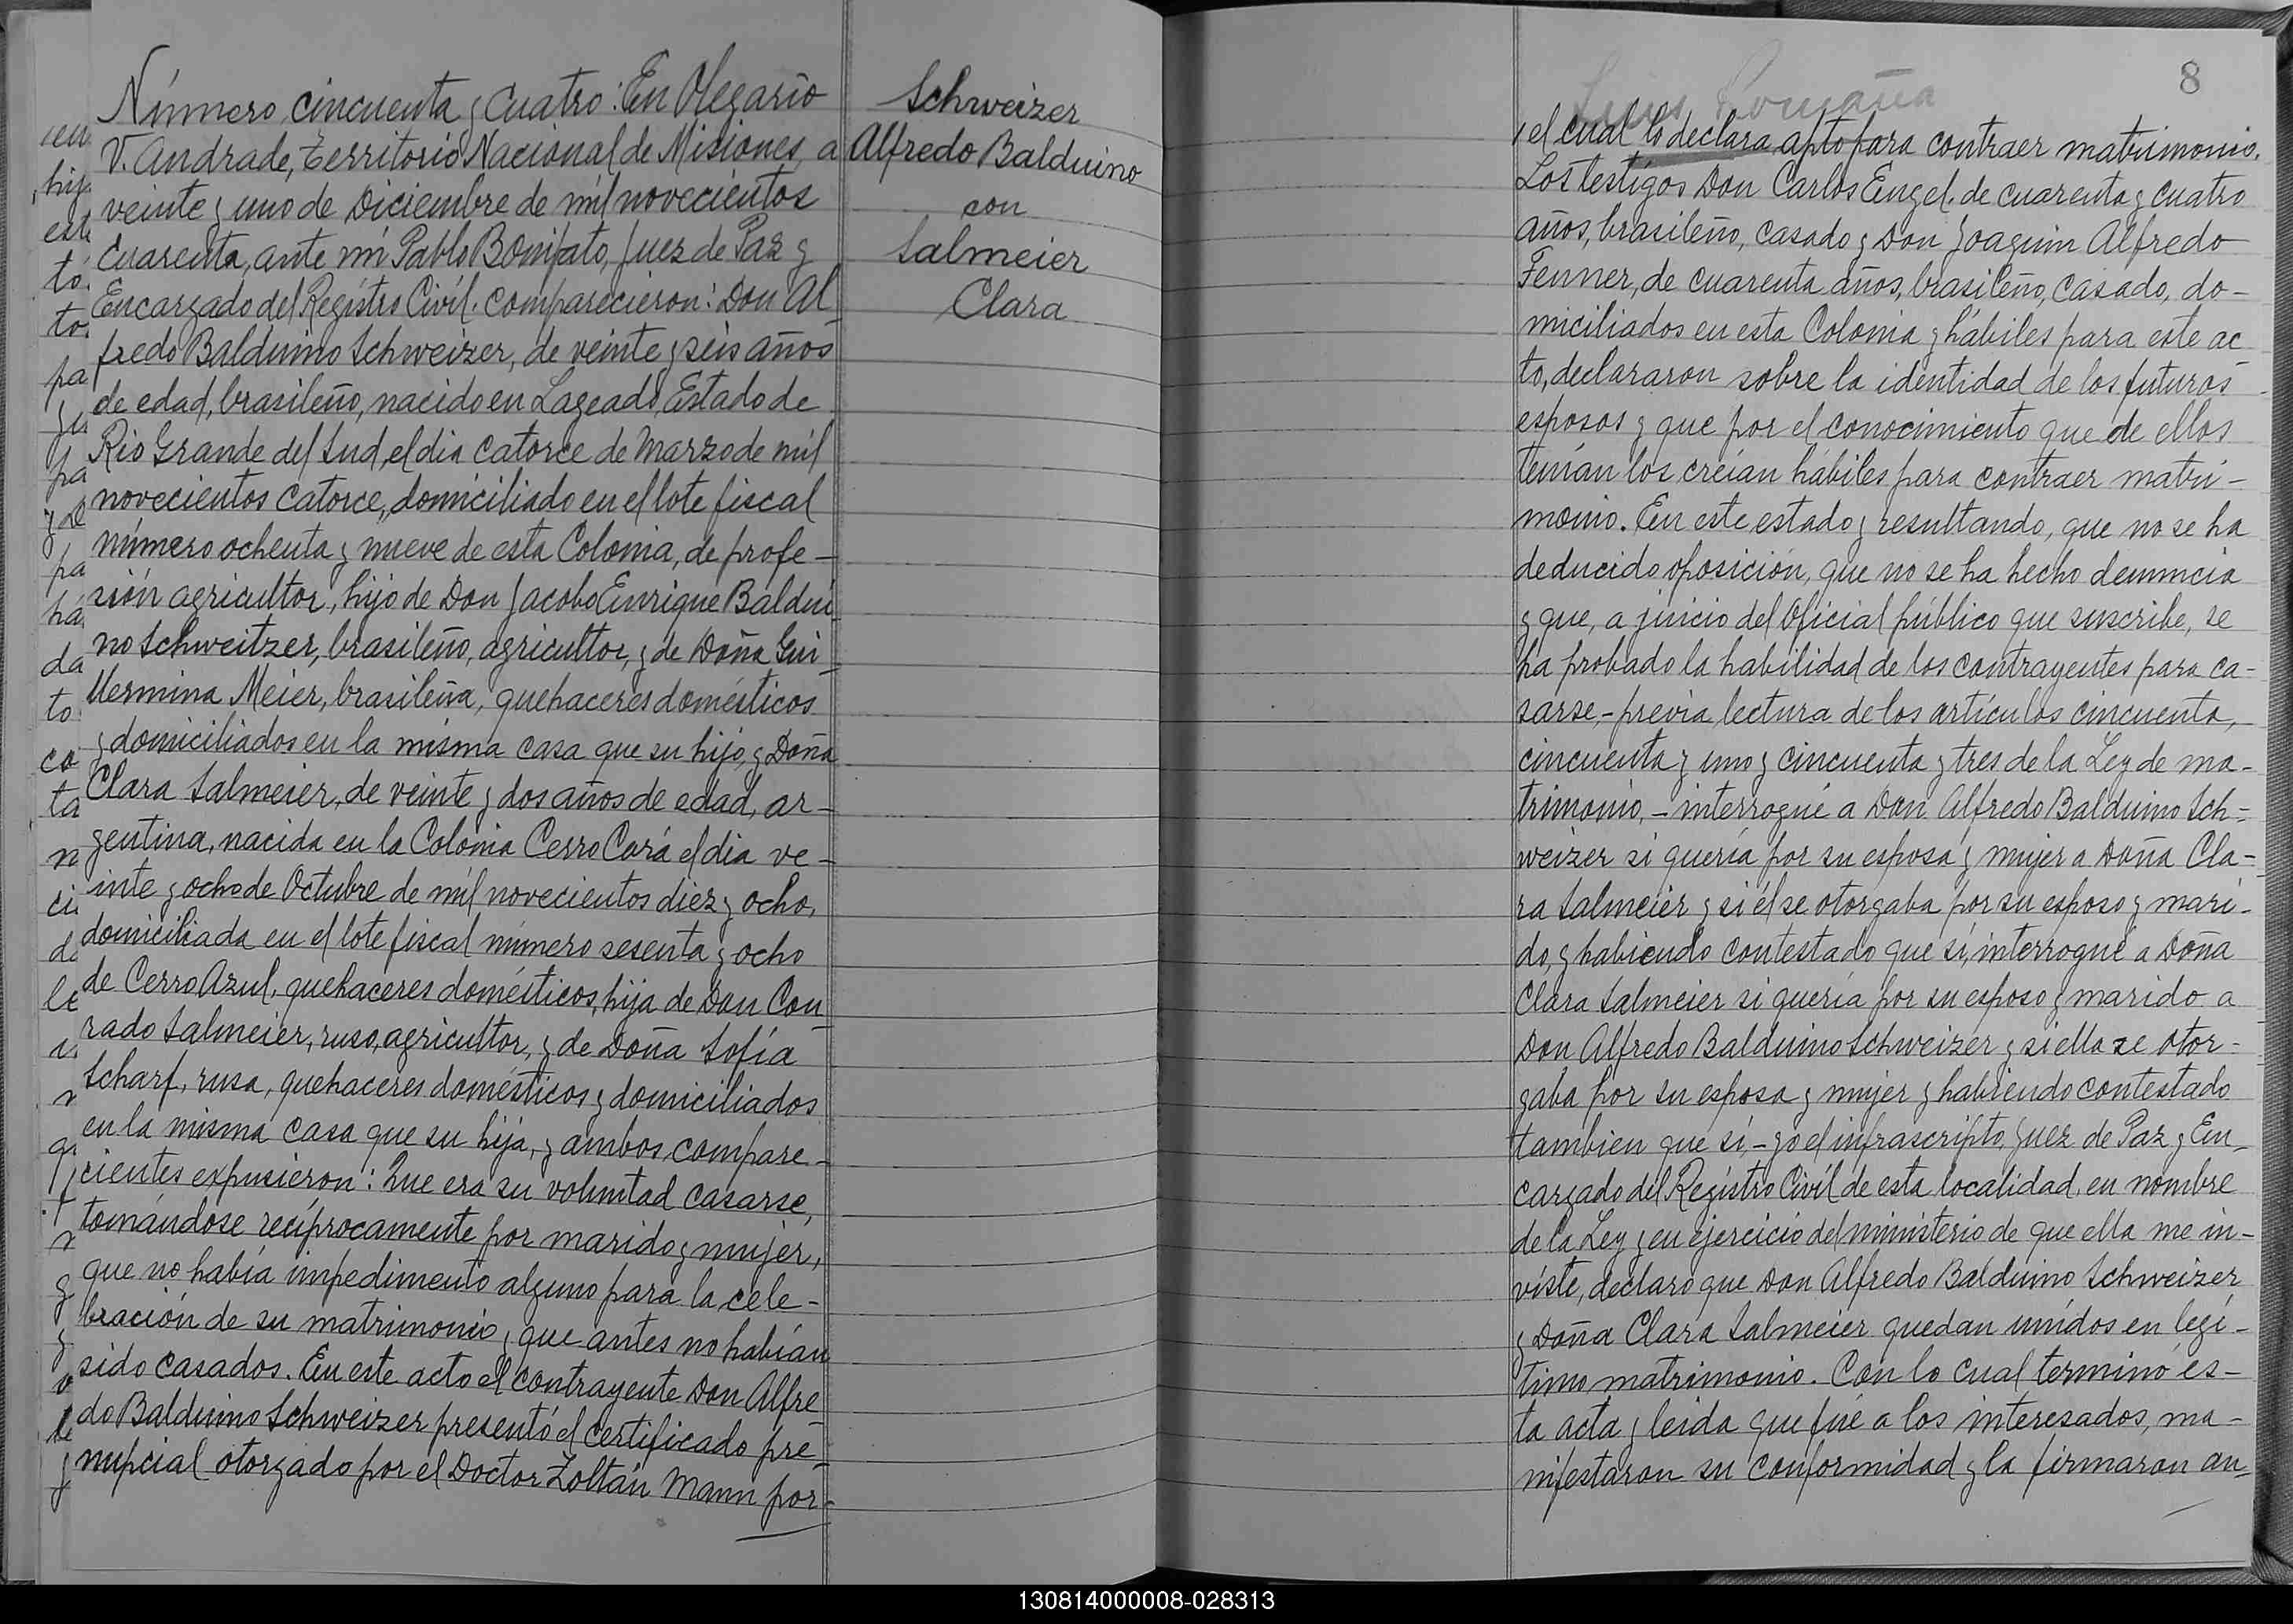 Número cincuenta y cuatro: En Olegario
V. Andrade, Territorio Nacional de Misiones, a
veinte y uno de Diciembre de mil novecientos
cuarenta, ante mí Pablo Bonifato, Juez de Paz y
Encargado del Registro Civil. Comparecieron: Don Al
fredo Balduino Schweizer, de veinte y seis años
de edad, brasileño, nacido en Lageado, Estado de
Rio Grande del Sud, el dia catorce de Marzo de mil
novecientos catorce, domiciliado en el lote fiscal
número ochenta y nueve de esta Colonia, de profe-
sión agricultor, hijo de Don Jacobo Enrique Baldui
no Schweitzer, brasileño, agricultor, y de Doña Gui
llermina Meier, brasileña, quehaceres domésticos
y domiciliados en la misma casa que su hijo, y Doña
Clara Salmeier, de veinte y dos años de edad, ar-
gentina, nacida en la Colonia Cerro Corá el dia ve-
inte y ocho de Octubre de mil novecientos diez y ocho,
domiciliada en el lote fiscal número sesenta y ocho
de Cerro Azul, quehaceres domésticos, hija de Don Con
rado Salmeier, ruso, agricultor, y de Doña Sofía
Scharf, rusa, quehaceres domésticos y domiciliados
en la misma casa que su hija, y ambos compare-
cientes expusieron: Que era su voluntad casarse,
tomándose recíprocamente por marido y mujer,
que no había impedimento alguno para la cele-
bración de su matrimonio y que antes no habían
sido casados. En este acto el contrayente Don Alfre
do Balduino Schweizer presentó el certificado pre-
nupcial otorgado por el Doctor Zoltán Mann por-
Schweizer
Alfredo Balduino
con
Salmeier
Clara
8
Luis Romaña
el cual lo declara apto para contraer matrimonio.
Los testigos Don Carlos Engel, de cuarenta y cuatro
años, brasileño, casado y Don Joaquin Alfredo
Fenner, de cuarenta años, brasileño, casado, do-
miciliados en esta Colonia y hábiles para este ac
to, declararon sobre la identidad de los futuros
esposos y que por el conocimiento que de ellos
tenían los creían hábiles para contraer matri-
monio. En este estado y resultando, que no se ha
deducido oposición, que no se ha hecho denuncia
y que, a juicio del Oficial público que suscribe, se
ha probado la habilidad de los contrayentes para ca-
sarse,- previa lectura de los artículos cincuenta,
cincuenta y uno y cincuenta y tres de la Ley de ma-
trimonio, - interrogué a Don Alfredo Balduino Sch-
weizer si quería por su esposa y mujer a Doña Cla-
ra Salmeier y si él se otorgaba por su esposo y mari-
do, y habiendo contestado que sí, interrogué a Doña
Clara Salmeier si quería por su esposo y marido a
Don Alfredo Balduino Schweizer y si ella se otor-
gaba por su esposa y mujer y habiendo contestado
tambien que sí, - yo el infrascripto, Juez de Paz y En-
cargado del Registro Civil de esta localidad, en nombre
de la Ley y en ejercicio del ministerio de que ella me in-
viste, declaro que Don Alfredo Balduino Schweizer
y Doña Clara Salmeier quedan unidos en legí-
timo matrimonio. Con lo cual terminó es-
ta acta y leida que fué a los interesados, ma-
nifestaron su conformidad y la firmaron an-
130814000008-028313